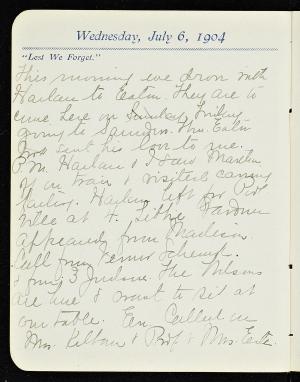 Wednesday, July 6, 1904
"Lest We Forget."
This morning we drove with
Harlan to Eatin. They are to
come here on Sunday, Friday
going to Mrs. Eatin
sent his love to me.
P.M. Harlan & I saw Martha
off in train & visited canning
factory. Harlan left for
ville at 4. Lettie Gardner
appeared from Madison
Call from
& from 3 Indians. The Wilsons
are here & want to sit at
our table. Eve. Called on
Mrs. Kilbourn & Prof & Mrs.